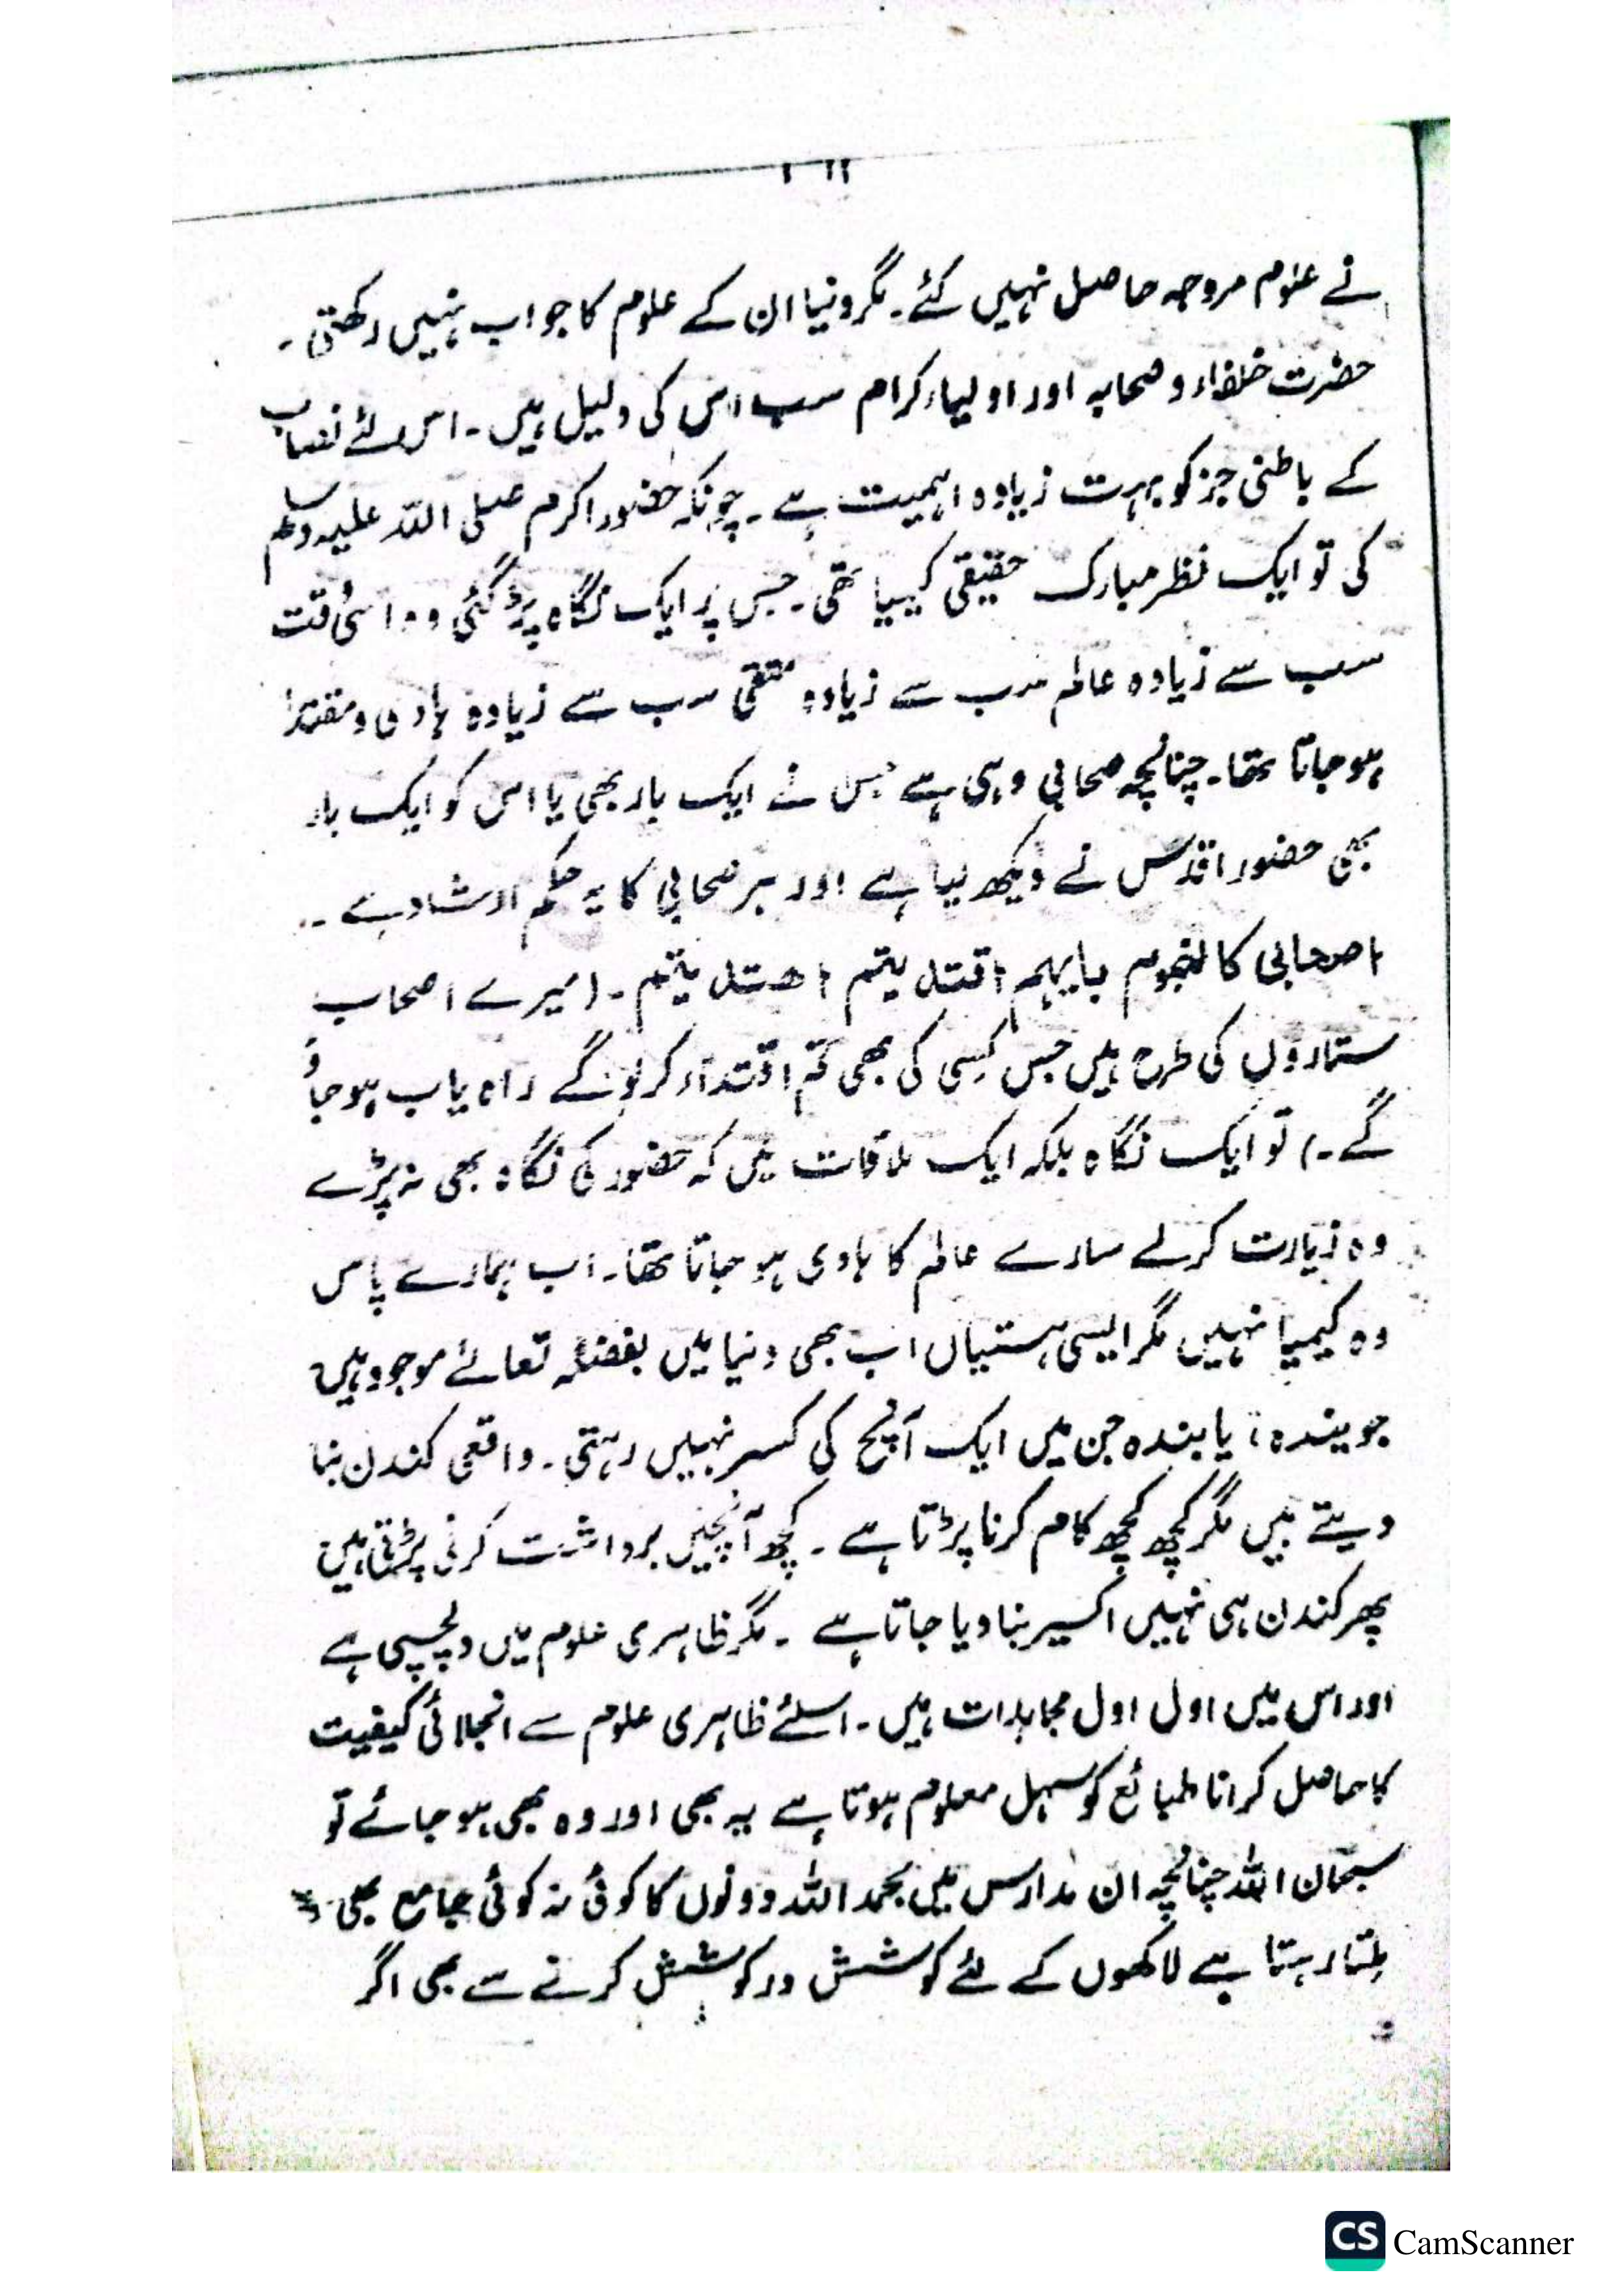 نے علوم مروجہ حاصل نہیں کئے۔ مگر دنیا ان کے علوم کا جواب نہیں رکھتی۔
حضرت خلفاء و صحابہ اور اولیاء کرام سب اس کی دلیل ہیں۔ اس لئے نصاب
کے باطنی جز کو بہت زیادہ اہمیت ہے۔ چونکہ حضور اکرم صلی اللہ علیہ وسلم
کی تو ایک نظر مبارک حقیقی کیمیا تھی۔ جس پر ایک نگاہ پڑ گئی وہ اسی وقت
سب سے زیادہ عالم سب سے زیادہ متقی سب سے زیادہ ہادی و مقتدا
ہو جاتا تھا۔ چنانچہ صحابی وہی ہے جس نے ایک بار بھی یا اس کو ایک بار
بھی حضور اقدس نے دیکھ لیا ہے اور ہر صحابی کا یہ حکم ارشاد ہے۔۔
اصحابی کالنجوم بایہم اقتدیتم اھتدیتم۔ (میرے اصحاب
ستاروں کی طرح ہیں جس کسی کی بھی تم اقتداء کر لو گے راہ یاب ہو جاؤ
گے۔) تو ایک نگاہ بلکہ ایک ملاقات میں کہ حضور کی نگاہ بھی نہ پڑے
وہ زیارت کرلے سارے عالم کا ہادی ہو جاتا تھا۔ اب ہمارے پاس
وہ کیمیا نہیں مگر ایسی ہستیاں اب بھی دنیا میں بفضلہ تعالےٰ موجود ہیں
جویندہ یابندہ جن میں ایک آنچ کی کسر نہیں رہتی۔ واقعی کندن بنا
دیتے ہیں مگر کچھ کچھ کام کرنا پڑتا ہے۔ کچھ آنچیں برداشت کرنی پڑتی ہیں
پھر کندن ہی نہیں اکسیر بنا دیا جاتا ہے۔ مگر ظاہری علوم میں دلچسپی ہے
اور اس میں اول اول مجاہدات ہیں۔ اسلئے ظاہری علوم سے انجلائی کیفیت
کا حاصل کرانا طبائع کو سہل معلوم ہوتا ہے یہ بھی اور وہ بھی ہو جائے تو
سبحان اللہ چنانچہ ان مدارس میں بحمد اللہ دونوں کا کوئی نہ کوئی جامع بھی
ملتا رہتا ہے لاکھوں کے لئے کوشش در کوشش کرنے سے بھی اگر
CS CamScanner